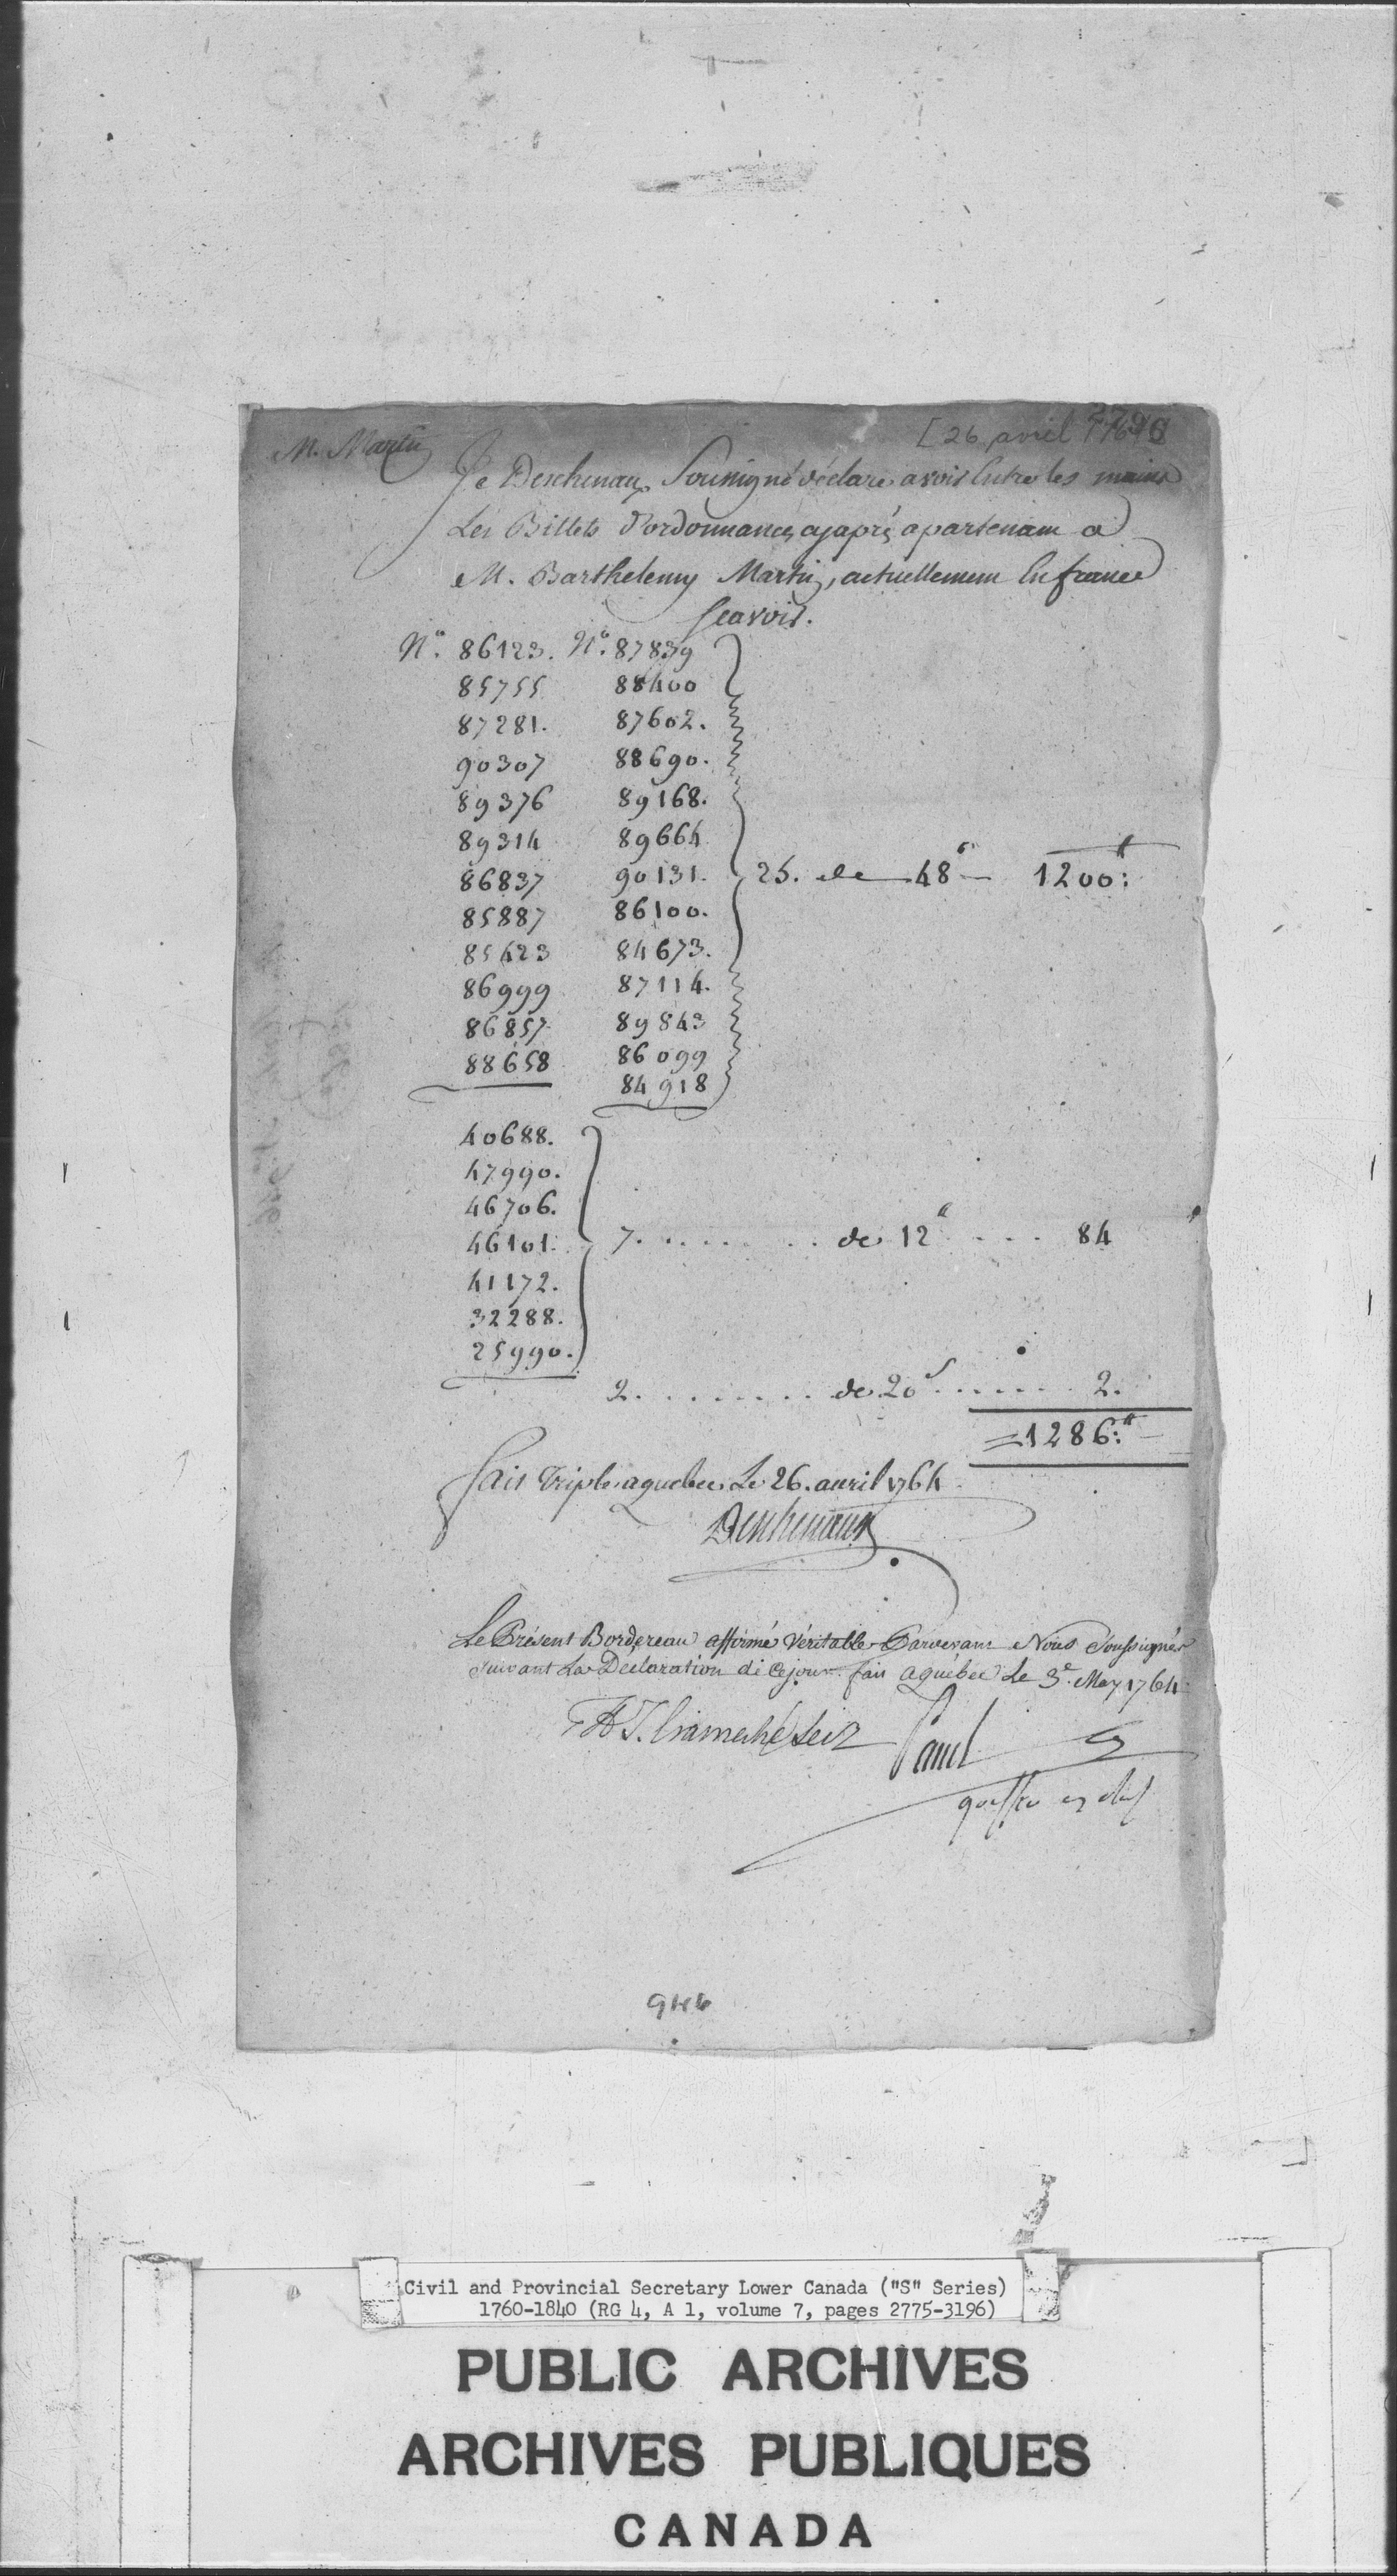 M. Martin
[26 avril 1764]
Je Deschenaux Sousigné déclare avoir Entre les mains
Les Billets d'ordonnances cyaprés apartenam a
M. Barthelemy Martin, actuellemem En france
Scavoir.
N.º 86123. N.º 87839
85755 88400
87281. 87602.
90307 88690.
89376 89168.
89314 89664
86837 90131. 25. de 48 1200:
85887 86100.
85423 84673.
86999 87114.
86857 89843
88658 86099
84918
40688.
47990.
46706.
46101. 7. . . . . . . de 12 . . . . 84
41172.
32288.
25990.
2. . . . . . . . de 20ˢ . . . . . . 2.
=1286:
fait Triple a quebec Le 26. avril 1764
Deschenaux
Le Présent Bordereau affirmé Véritable Pardevant Nous Soussignés
Suivant La Déclaration de Cejour fait a québec Le 3e. May 1764
H T. Cramahé
Panet
greffier en chef
Civil and Provincial Secretary Lower Canada ("S" Series)
1760-1840 (RG 4, A 1, volume 7, pages 2775-3196)
PUBLIC ARCHIVES
ARCHIVES PUBLIQUES
CANADA